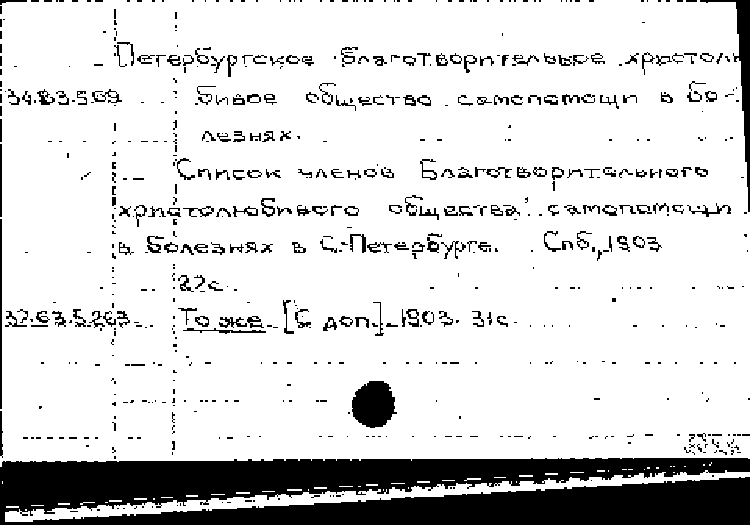 Петербургское благотворительное христолю-
34.83.5.69 бивое общество самопомощи в бо-
лезнях.
Список членов Благотворительного
христолюбивого общества самопомощи
в болезнях в С.-Петербурге. Спб., 1903
22с.
37.63.5.263 То же. [С доп.]. 1903. 31с.